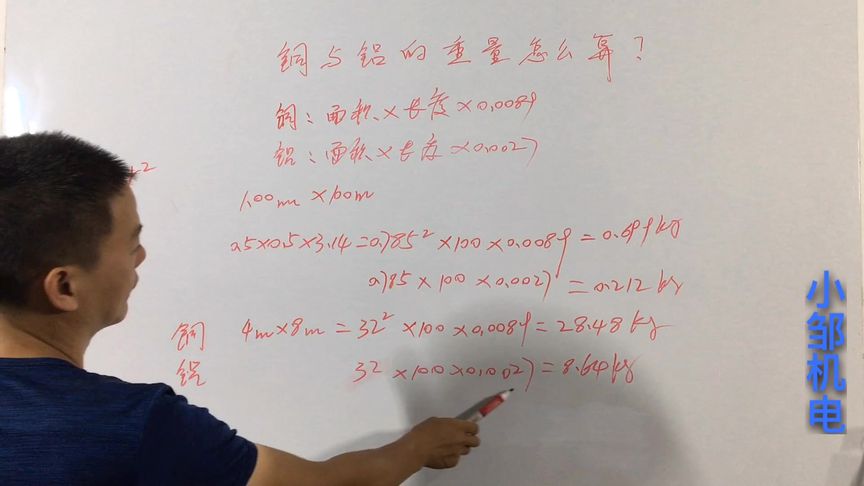 铜与铝的重量怎么算？
铜：面积×长度×0.0089
铝：面积×长度×0.0027
1.00mm×100m
0.5×0.5×3.14=0.785²×100×0.0089=0.699kg
0.785×100×0.0027=0.212kg
铜 4m×8m=32²×100×0.0089=28.48kg
铝 32×100×0.0027=8.64kg
小邹机电